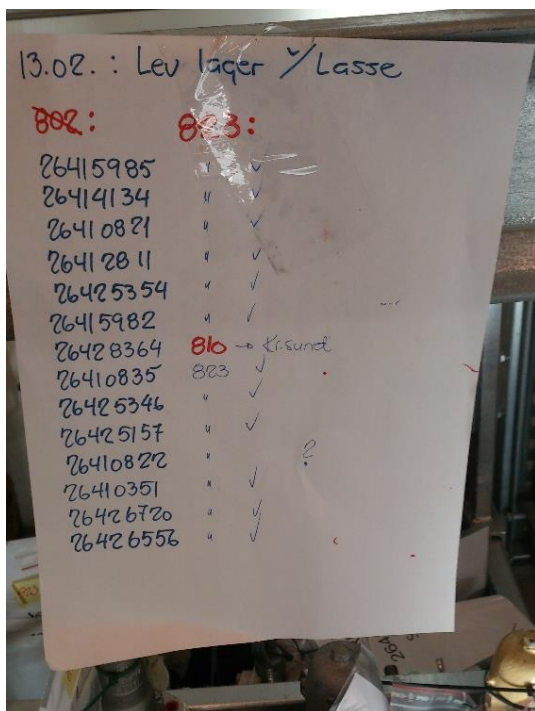 13.02. : Lev lager v/Lasse
802: 823:
26415985 " ✓
26414134 " ✓
26410821 " ✓
26412811 " ✓
26425354 " ✓
26415982 " ✓
26428364 810 → Kr.sund
26410835 823 ✓
26425346 " ✓
26425157 " ✓
26410822 " ?
26410351 " ✓
26426720 " ✓
26426556 " ✓
264